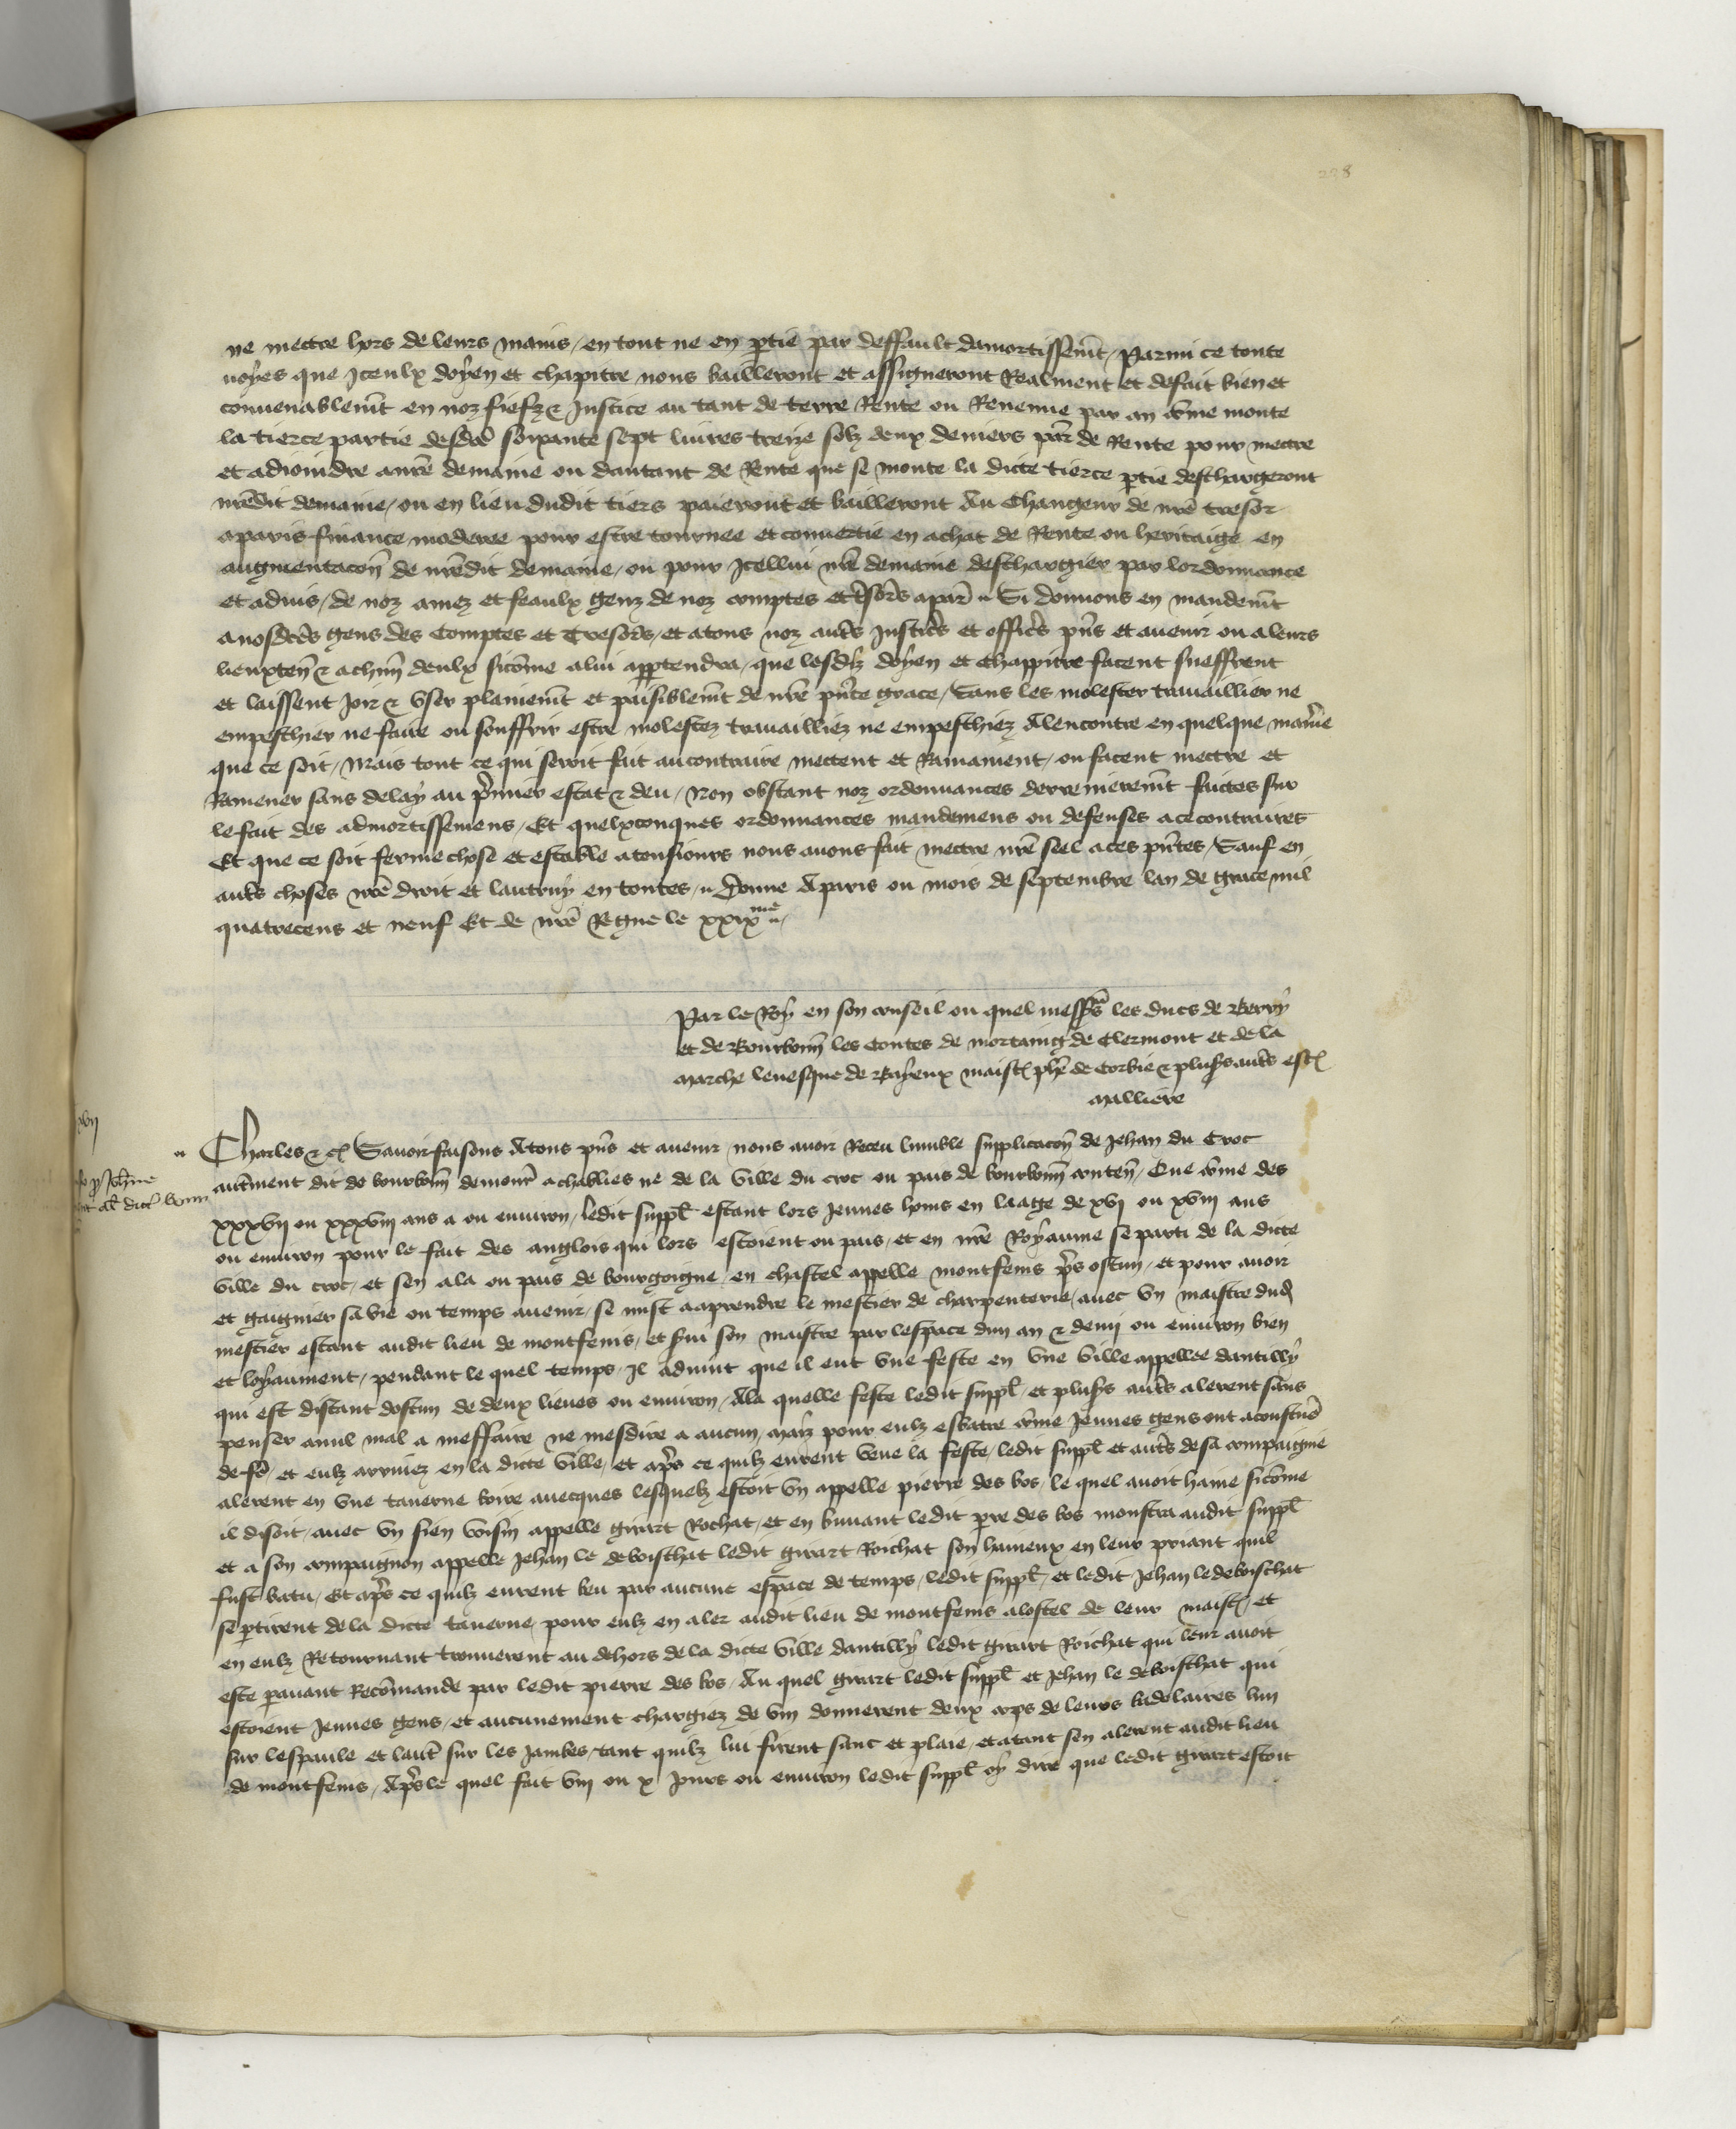 228
ne mectre hors de leurs mains / en tout ne en ptie par deffault damortissemt / Parmi ce toute
uoyes que Iceulx doyen et chapitre nous bailleront et assigneront Realment et defait bien et
conuenablemt en noz fiefz & Iustice au tant de terre Rente ou Reuenue par an cõme monte
la tierce partie desdes soixante sept liures treize solz deux deniers par de Rente pour mectre
et adioindre anre demaine ou dautant de Rente que se monte la dicte tierce ptie deschargeront
nredit demaine / ou en lieu dudit tiers paieront et bailleront Au Changeur de nre tresor
aparis finance moderee pour estre tournee et conuertie en achat de Rente ou heritaige en
augmentacon de nredit demaine / ou pour Icellui nre demaine deschargier par lordonnance
et aduis / de noz amez et feaulx genz de noz comptes et tsors apar Si donnons en mandemt
anosdcds gens des Comptes et Tresors / et atous noz auts Iustics et offics pns et auenir ou aleurs
lieuxten & achun deulx sicome alui appartendra / que lesdiz doyen et chappitre facent sueffrent
et laissent Ioir & vser plainemt et paisiblemt de nre pnte grace / Sans les molester trauaillier ne
empeschier ne faire ou souffrir estre molestez trauailliez ne empeschiez Alencontre en quelque maniē
que ce soit / Mais tout ce qui seroit fait aucontraire mectent et Ramainent / ou facent mectre et
Ramener sans delay au pmier estat & deu / Non obstant noz ordonnances derrenieremt faictes sur
le fait des admortissemens / Et quelxconques ordonnances mandemens ou defenses ace contraires
Et que ce soit ferme chose et estable atousiours nous auons fait mectre nre seel aces pntes / Sauf en
auts choses nre droit et lautruy en toutes Donne Aparis ou mois de septembre lan de grace mil
quatrecens et neuf Et de nre Regne le xxixme
Par le Roy en son conseil ou quel messrs les ducs de Berry
et de Bourbonn les Contes de mortaing de Clermont et de la
marche leuesque de Bayeux maist phe de Corbie & plus auts est
Malliere
Charles & c Sauoir faisons Atous pns et auenir nous auoir Receu lumble supplicacon de Jehan du Croc
autment dit de bourbonn demour achablies ne de la ville du croc ou pais de bourbonn conten / Que cõme des
xxxvij ou xxxviij ans a ou enuiron / ledit suppl estant lors Jeunes homs en laage de xvj ou xviij ans
ou enuiron pour le fait des anglois qui lors estoient ou pais / et en nre Royaume se parti de la dicte
ville du croc / et sen ala ou pais de bourgoigne en chastel appelle montfenis pres ostun / et pour auoir
et gaignier sa vie ou temps auenir / se mist aaprendre le mestier de charpenterie / auec vn maistre dud
mestier estant audit lieu de montfenis / et serui son maistre par lespace dun an & demi ou enuiron bien
et loyaument / pendant le quel temps / Il aduint que il eut vne feste en vne ville appellee dantilly
qui est distant dostun de deux lieues ou enuiron / Ala quelle feste ledit suppl et plusrs auts alerent sans
penser anul mal a meffaire ne mesdire a aucun / Maiz pour eulz esbatre cõme Jeunes gens ont acoustume
de fe / et eulz arriuez en la dicte ville / et aprs ce quilz eurent veue la feste / ledit suppl et auts de sa compaignie
alerent en vne tauerne boire auecques lesquelz estoit vn appelle pierre des bos / le quel auoit haine sicõme
il disoit / auec vn sien voisin appelle girart Rochat / et en buuant ledit pre des bos monstra audit suppl
et a son compaignon appelle Jehan le deboischat ledit girart Roichat son haineux en leur priant quil
fust batu / Et aprs ce quilz eurent beu par aucune espace de temps / ledit suppl / et ledit Jehan le deboischat
se ptirent de la dicte tauerne pour eulz en aler audit lieu de montfenis alostel de leur maist / et
en eulz Retournant trouuerent au dehors de la dicte ville dantilly ledit girart Roichat qui leur auoit
este pauant Recõmande par ledit pierre des bos / Au quel girart ledit suppl et Jehan le deboischat qui
estoient Jeunes gens / et aucunement chargiez de vin donnerent deux cops de leurs badelaires lun
sur lespaule et laut sur les Jambes / tant quilz lui firent sanc et plaie / et atant sen alerent audit lieu
de montfenis / Aprs le quel fait viij ou x Jours ou enuiron ledit suppl oy dire que ledit girart estoit